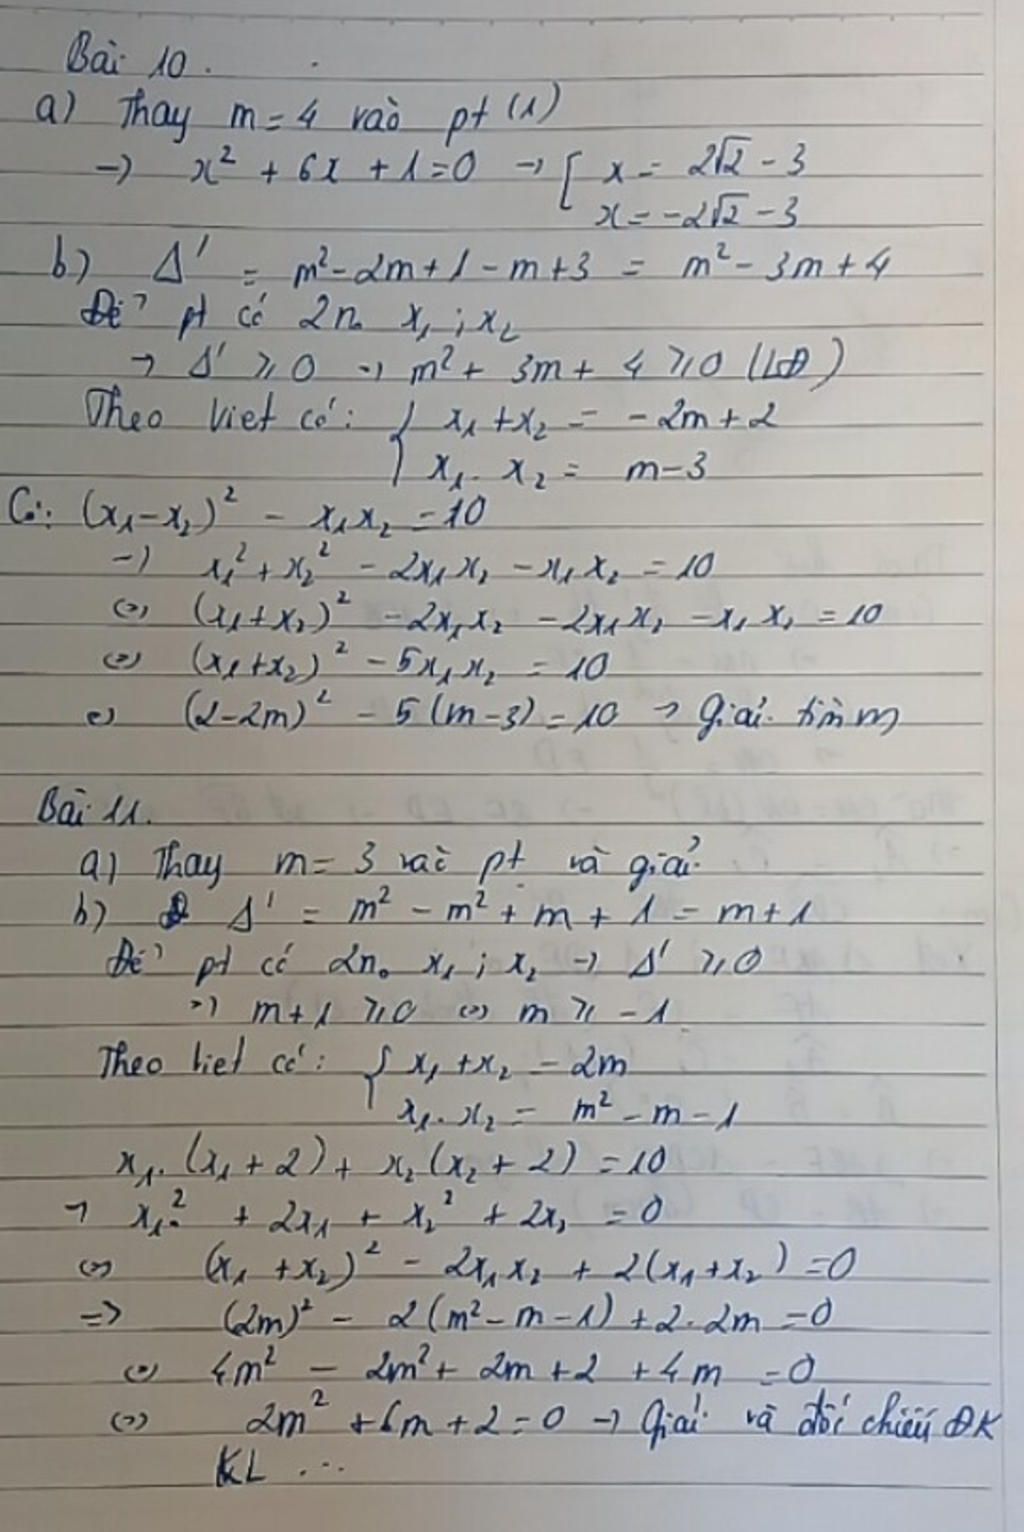 Bài 10.
a) Thay m = 4 vào pt (1)
→ x² + 6x + 1 = 0 → [ x = 2√2 - 3
x = -2√2 - 3
b) Δ' = m² - 2m + 1 - m + 3 = m² - 3m + 4
Để pt có 2n₀ x₁ ; x₂
→ Δ' ≥ 0 → m² + 3m + 4 ≥ 0 (LĐ)
Theo Viet có: { x₁ + x₂ = -2m + 2
x₁ . x₂ = m - 3
Có: (x₁ - x₂)² - x₁x₂ = 10
→ x₁² + x₂² - 2x₁x₂ - x₁x₂ = 10
⇔ (x₁ + x₂)² - 2x₁x₂ - 2x₁x₂ - x₁x₂ = 10
⇔ (x₁ + x₂)² - 5x₁x₂ = 10
⇔ (2 - 2m)² - 5(m - 3) = 10 → Giải tìm m
Bài 11.
a) Thay m = 3 vào pt và giải
b) Δ' = m² - m² + m + 1 = m + 1
Để pt có 2n₀ x₁ ; x₂ → Δ' ≥ 0
→ m + 1 ≥ 0 ⇔ m ≥ -1
Theo Viet có: { x₁ + x₂ = 2m
x₁ . x₂ = m² - m - 1
x₁ . (x₁ + 2) + x₂ (x₂ + 2) = 10
→ x₁² + 2x₁ + x₂² + 2x₂ = 0
⇔ (x₁ + x₂)² - 2x₁x₂ + 2(x₁ + x₂) = 0
=> (2m)² - 2(m² - m - 1) + 2 . 2m = 0
⇔ 4m² - 2m² + 2m + 2 + 4m = 0
⇔ 2m² + 6m + 2 = 0 → Giải và đối chiếu ĐK
KL ...